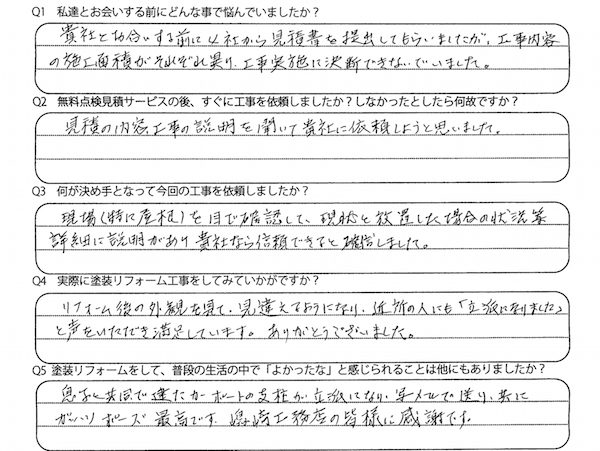 Q1 私達とお会いする前にどんな事で悩んでいましたか？
貴社とお会いする前に4社から見積書を提出してもらいましたが、工事内容
の施工面積がそれぞれ異り、工事実施に決断できないでいました。
Q2 無料点検見積サービスの後、すぐに工事を依頼しましたか？しなかったとしたら何故ですか？
見積の内容、工事の説明を聞いて貴社に依頼しようと思いました。
Q3 何が決め手となって今回の工事を依頼しましたか？
現場(特に屋根)を目で確認して、現状と放置した場合の状況等
詳細に説明があり貴社なら信頼できると確信しました。
Q4 実際に塗装リフォーム工事をしてみていかがですか？
リフォーム後の外観を見て、見違えるようになり、近所の人にも「立派になりました」
と声をいただき満足しています。ありがとうございました。
Q5 塗装リフォームをして、普段の生活の中で「よかったな」と感じられることは他にもありましたか？
息子と共同で建たカーポートの支柱が立派になり、写メールで送り、共に
ガッツポーズ 最高です。工務店の皆様に感謝です。